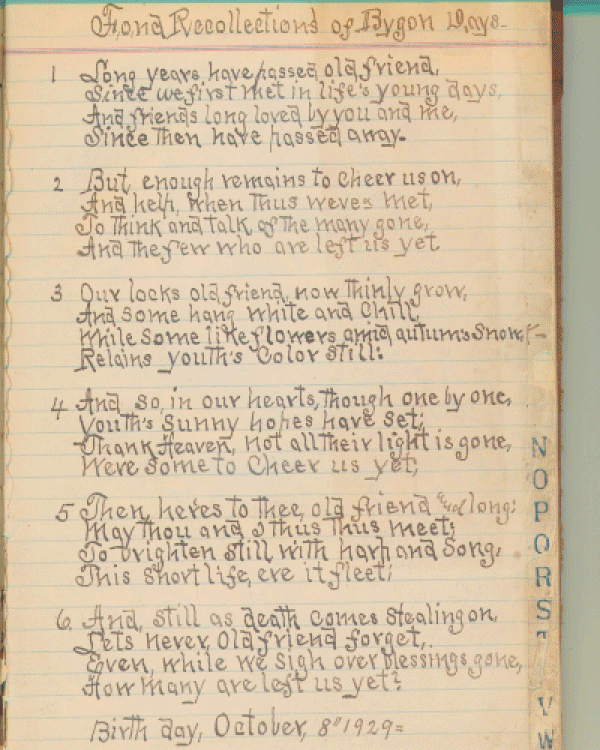 Fond Recollections of Bygon Days-
1 Long years, have passed, old friend,
Since we first met in life's young days,
And friends long loved by you and me,
Since Then have passed away.
2 But, enough remains to Cheer us on,
And help, When Thus weves met,
To Think and talk, of The many gone,
And the few who are left us yet
3 Our locks old friend, now Thinly grow,
And Some hang White and Chill,
While Some like flowers amid autums Snow,
Retains youth's Color Still:
4 And, So, in our hearts, Though one by one,
Youth's Sunny hopes have Set;
Thank Heaven, not all Their light is gone,
Were Some to Cheer us yet;
5 Then, heres to thee, old friend long:
May thou and I thus thus meet;
To brighten Still with harp and Song,
This Short life, ere it fleet;
6 And, Still as death Comes Stealing on,
Lets never, Old friend forget,
Even, while we Sigh over blessings gone,
How many are left us yet?
Birth day, October, 8" 1929=
N
O
P
Q
R
S
V
W